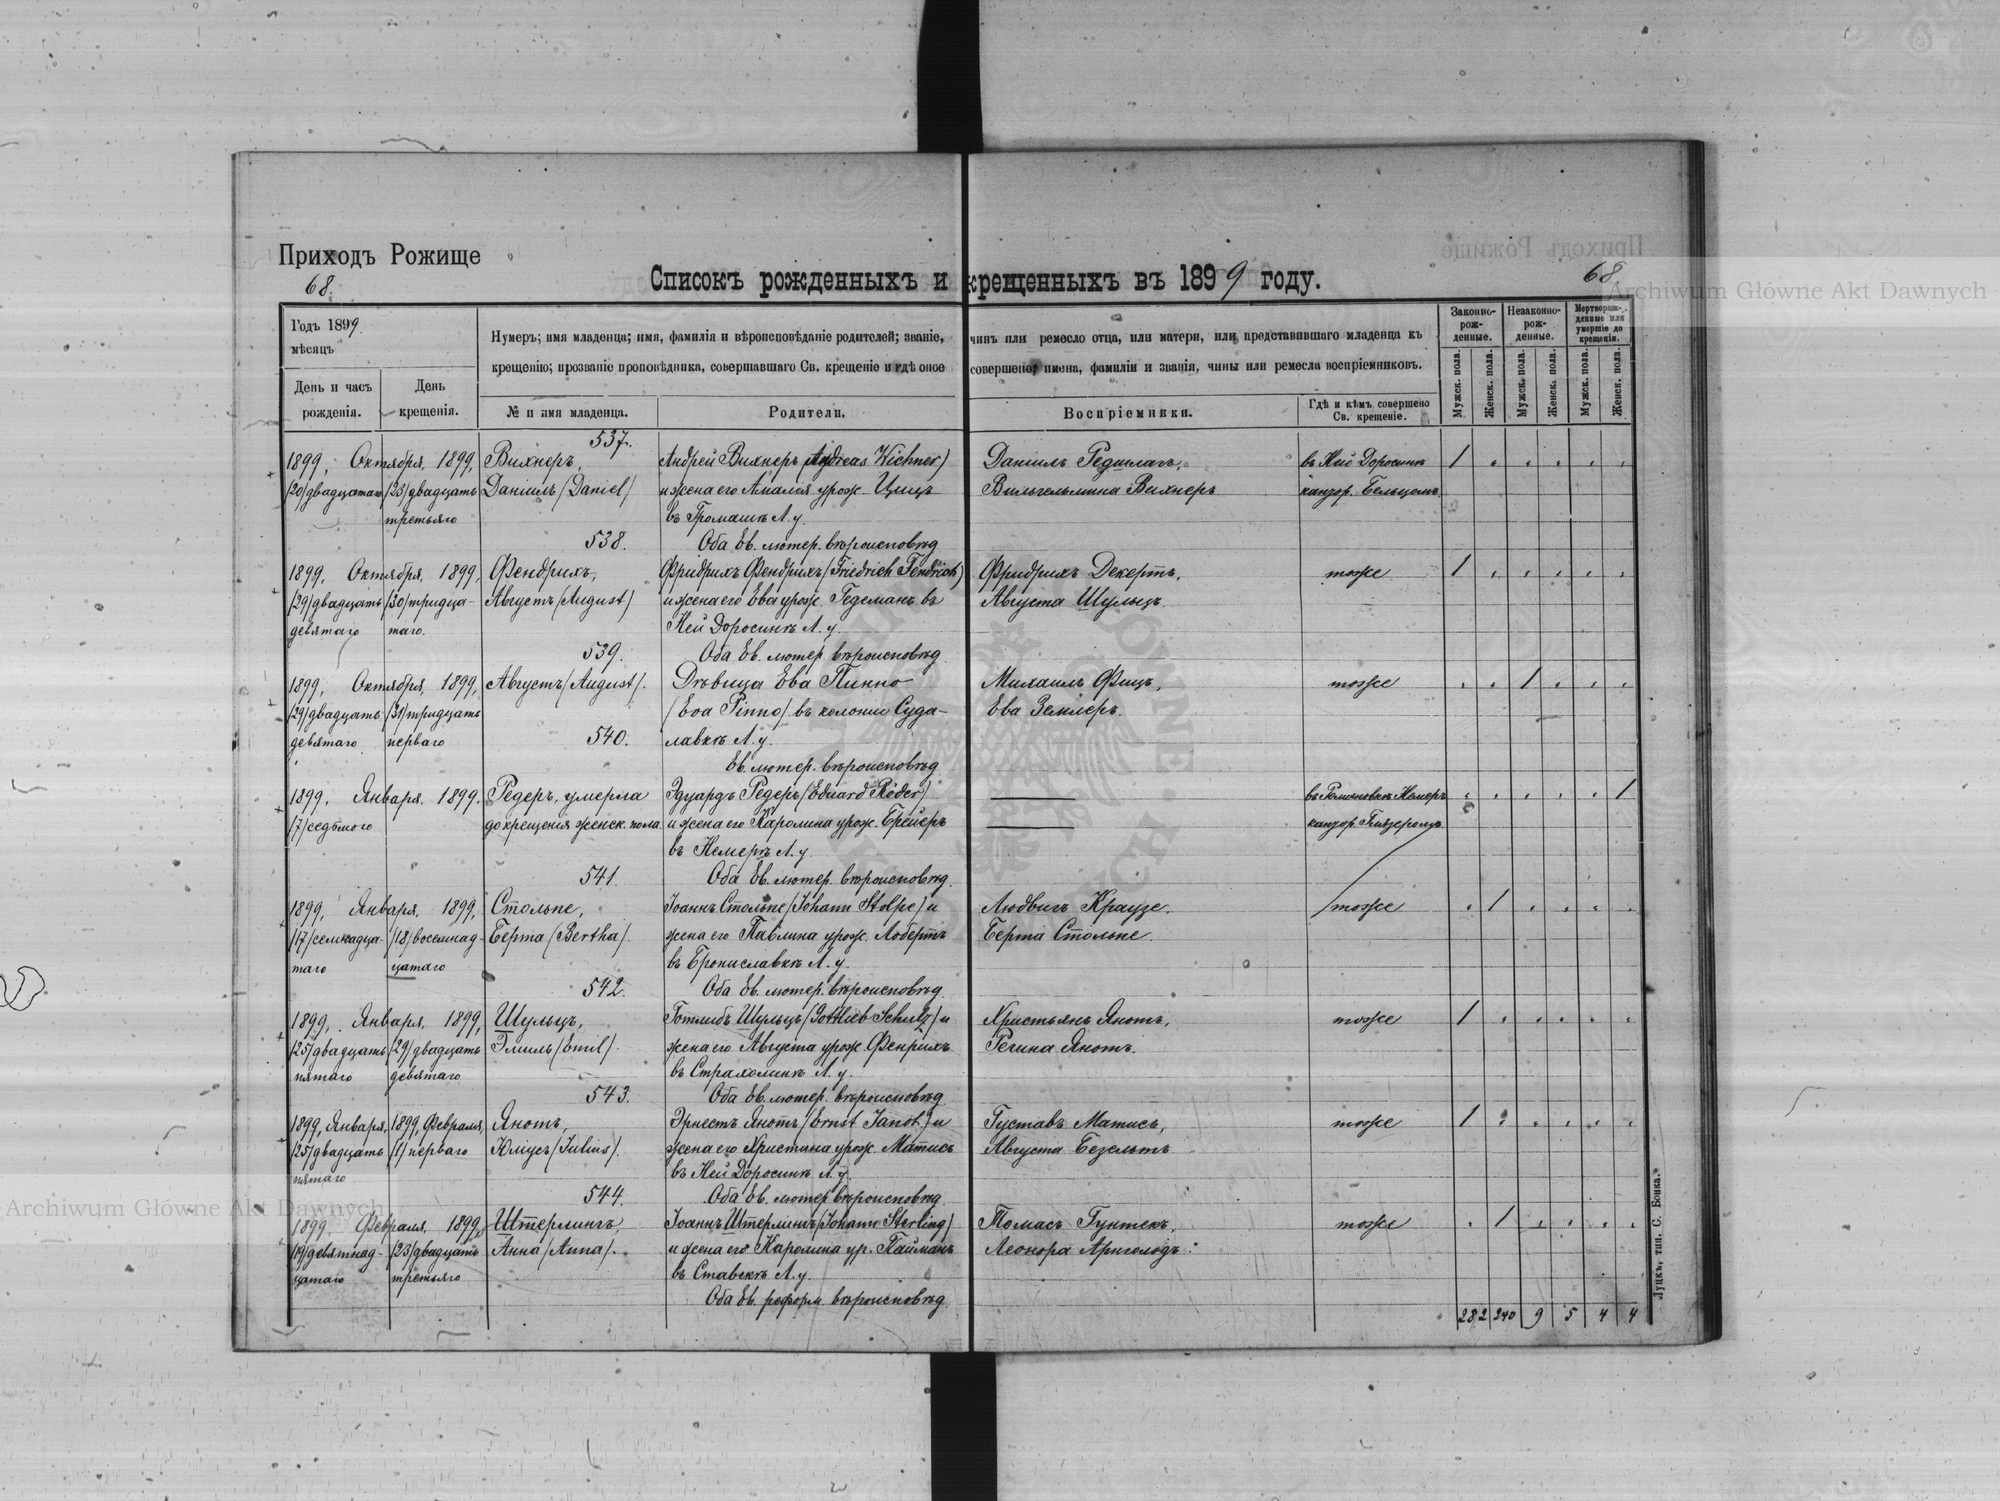 Приходъ Рожище
68.
68
Списокъ рожденныхъ и крещенныхъ въ 1899 году.
Archiwum Główne Akt Dawnych
Годъ 1899.
мѣсяцъ
День и часъ рожденія.
День крещенія.
Нумеръ; имя младенца; имя, фамилія и вѣроисповѣданіе родителей; званіе, чинъ или ремесло отца, или матери, или представившаго младенца къ
крещенію; прозваніе проповѣдника, совершавшаго Св. крещеніе и гдѣ оное совершено; имена, фамиліи и званія, чины или ремесла воспріемниковъ.
№ и имя младенца.
Родители.
Воспріемники.
Гдѣ и кѣмъ совершено Св. крещеніе.
Законно-рож-денные.
Незаконно-рож-денные.
Мертворож-денные или умершіе до крещенія.
Мужск. пола.
Женск. пола.
Мужск. пола.
Женск. пола.
Мужск. пола.
Женск. пола.
537.
1899, Октября, 1899, Вихнеръ, Андрей Вихнеръ (Andreas Wichner) Даніилъ въ Ней Доросинѣ 1
/20/двадцатаго /23/двадцать Даніилъ /Daniel/ и жена его Амалія урож. Цицъ Вильгельмина Вихнеръ кантор. Бельцомъ
третьяго въ Громашѣ Л. у.
538. Оба Ев. лютер. вѣроисповѣд.
1899, Октября, 1899, Фендрихъ, Фридрихъ Фендрихъ /Friedrich Fendrich/ Фридрихъ Декертъ, тоже 1
/29/двадцать /30/тридца- Августъ /August/ и жена его Ева урож. Гедеманъ въ Августа Шульцъ.
девятаго таго. Ней Доросинѣ Л. у.
539. Оба Ев. лютер. вѣроисповѣд.
1899, Октября, 1899, Августъ /August/. Дѣвица Ева Пинно Михаилъ Фицъ, тоже 1
/29/двадцать /31/тридцать /Eva Pinno/ въ колоніи Суда- Ева Землеръ.
девятаго перваго 540. лавкѣ Л. у.
Ев. лютер. вѣроисповѣд.
1899, Января, 1899. Редеръ, умерла Эдуардъ Редеръ /Eduard Röder/ въ Романовкѣ Немеръ 1
/7/седьмого до крещенія женск. пола. и жена его Каролина урож. Брейеръ кантор.
въ Немерѣ Л. у.
541. Оба Ев. лютер. вѣроисповѣд.
1899, Января, 1899, Стольпе, Іоаннъ Стольпе /Johann Stolpe/ и Людвигъ Краузе, тоже 1
/17/семнадца- /18/восемнад- Берта /Bertha/. жена его Павлина урож. Лобертъ Берта Стольпе.
таго цатаго въ Брониславкѣ Л. у.
542. Оба Ев. лютер. вѣроисповѣд.
1899, Января, 1899, Шульцъ, Готлибъ Шульцъ /Gottlieb Schulz/ и Христьянъ Янотъ, тоже 1
/25/двадцать /29/двадцать Эмиль /Emil/. жена его Августа урож. Фенрихъ Регина Янотъ.
пятаго девятаго въ Страхолинѣ Л. у.
543. Оба Ев. лютер. вѣроисповѣд.
1899, Января, 1899, Февраля, Янотъ, Эрнестъ Янотъ /Ernst Janot/ и Густавъ Матисъ, тоже 1
/25/двадцать /1/перваго Юліусъ /Julius/. жена его Христина урож. Матисъ Августа Безельтъ
пятаго въ Ней Доросинѣ Л. у.
544. Оба Ев. лютер. вѣроисповѣд.
1899 Февраля, 1899, Штерлингъ, Іоаннъ Штерлингъ /Johann Sterling/ Томасъ Гунтекъ, тоже 1
/19/девятнад- /23/двадцать Анна /Anna/. и жена его Каролина ур. Пайманъ Леонора
цатаго третьяго въ Ставекѣ Л. у.
Оба Ев. реформ. вѣроисповѣд.
282 240 9 5 4 4
Луцкъ, тип. С. Бонка.
Archiwum Główne Akt Dawnych